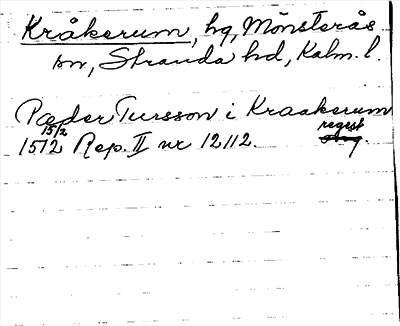 Kråkerum, hg, Mönsterås
sn, Stranda hd, Kalm. l.
Pæder Tursson i Kraakerum
15/2
1512 Rep. II nr 12112. regest